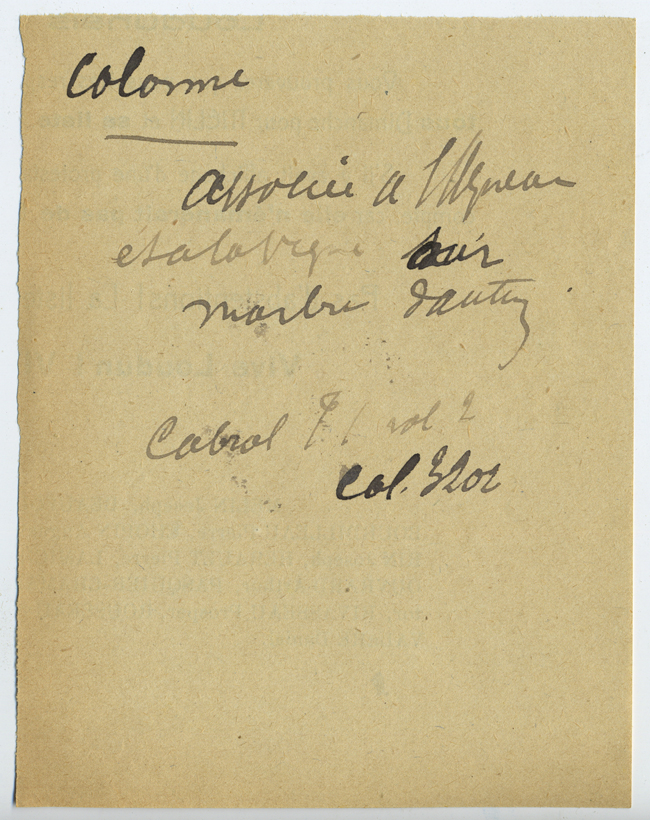 Colonne
associée à l'Agneau
et a la vigne sur
marbre d'autun
Cabrol T 1 vol. 2
Col. 3202